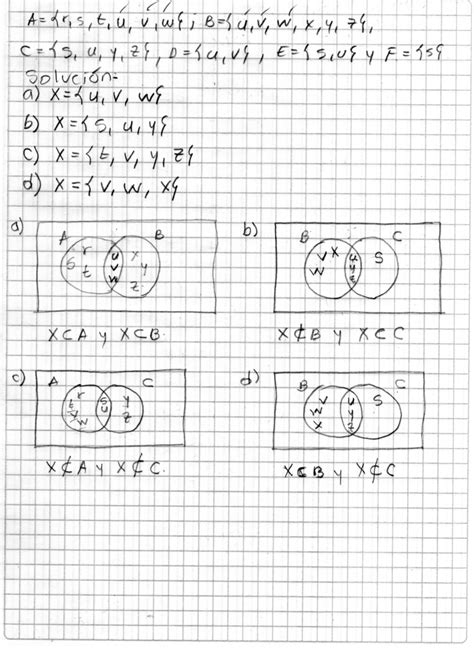 A={r,s,t,u,v,w}; B={u,v,w,x,y,z},
C={s,u,y,z}, D={u,v}, E={s,u} y F={s}
Solución-
a) X={u,v,w}
b) X={s,u,y}
c) X={t,v,y,z}
d) X={v,w,x}
a) A B r s t u v w x y z
b) B C v x w u y z s
X⊂A y X⊂B.
X⊄B y X⊂C
c) A C r t w s u y z
d) B C v w x u y z s
X⊄A y X⊄C.
X⊂B y X⊄C